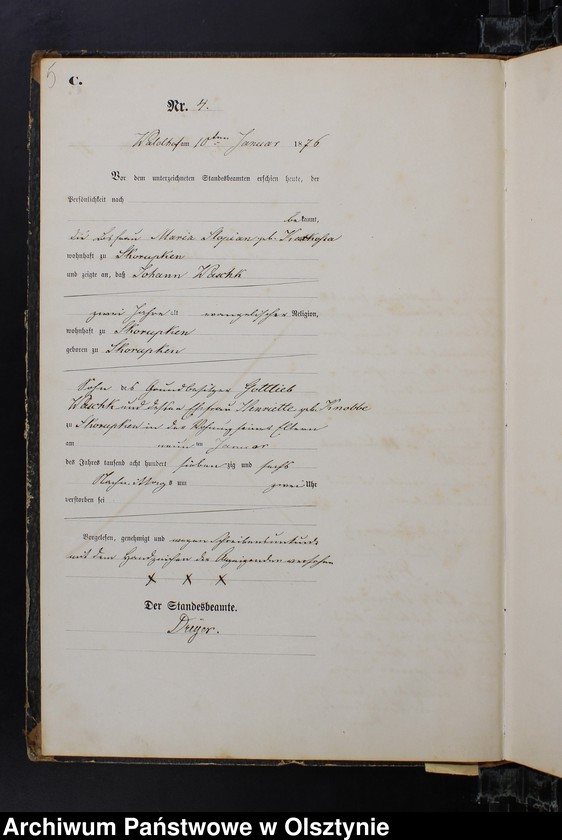 5
C.
Nr. 4.
Waldhof am 10ten Januar 1876
Vor dem unterzeichneten Standesbeamten erschien heute, der
Persönlichkeit nach
bekannt,
die Losfrau Maria Stopian geb.
wohnhaft zu Skorupken
und zeigte an, daß Johann Waschk
zwei Jahre alt evangelischer Religion,
wohnhaft zu Skorupken
geboren zu Skorupken
Sohn des Grundbesitzer Gottlieb
Waschk und dessen Ehefrau Henriette geb. Knobbe
zu Skorupken in der Wohnung seiner Eltern
am neunten Januar
des Jahres tausend acht hundert siebenzig und sechs
Nachmittags um zwei Uhr
verstorben sei
Vorgelesen, genehmigt und wegen Schreibensunkunde
mit dem Handzeichen der Anzeigenden versehen
X X X
Der Standesbeamte.
Archiwum Państwowe w Olsztynie